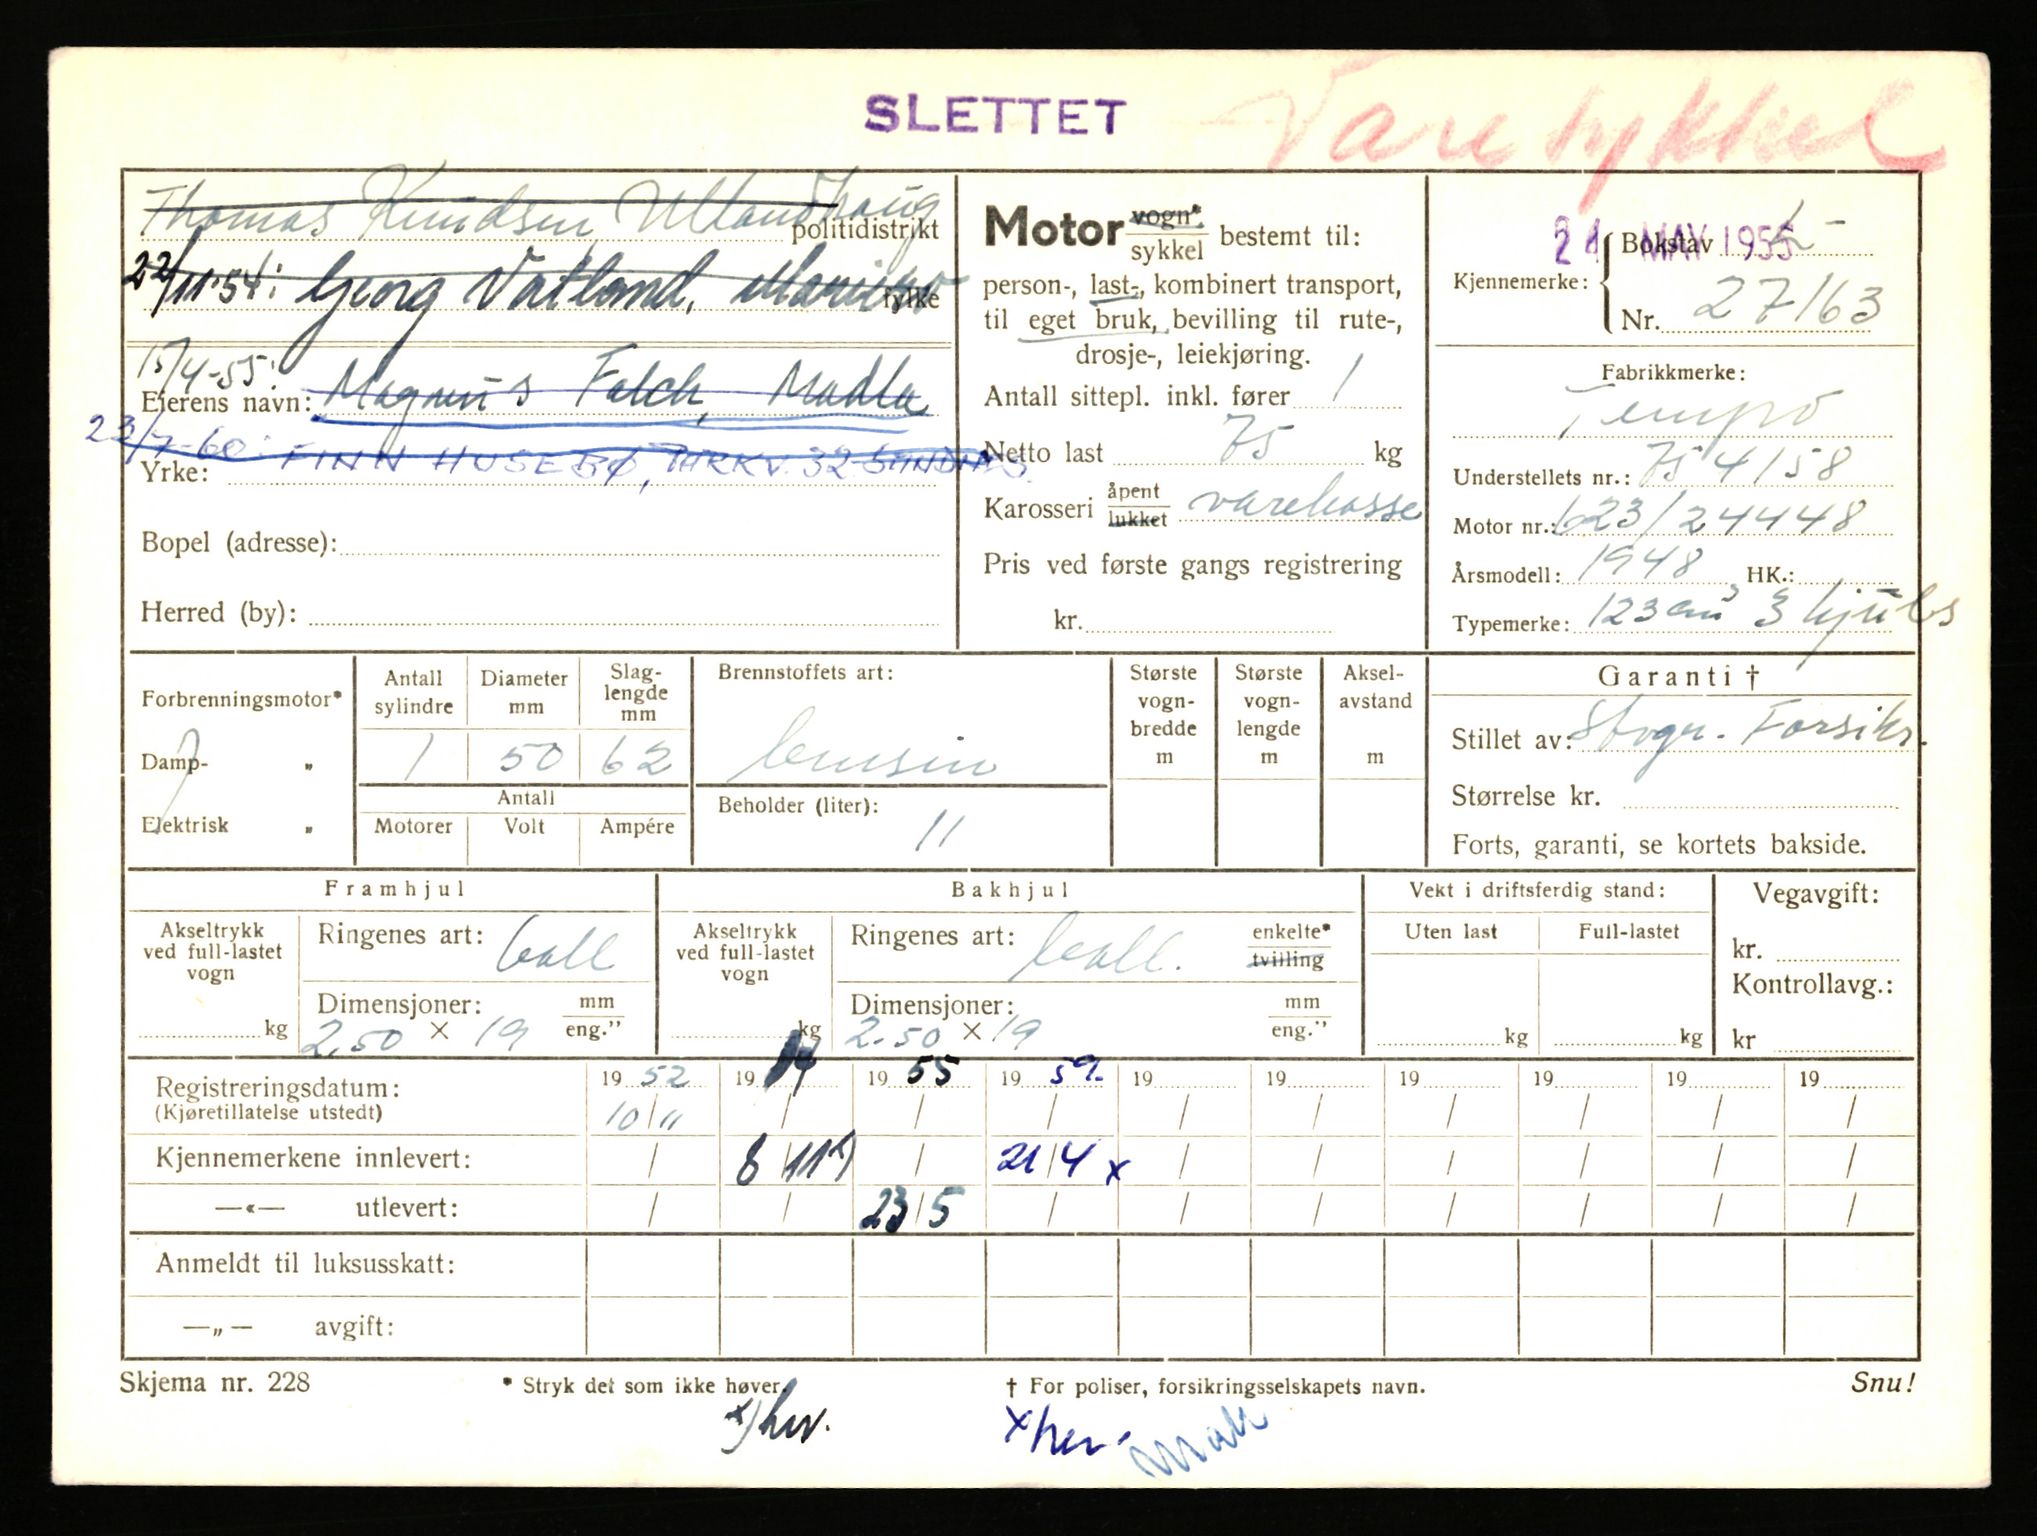 SLETTET
Varesykkel
Thomas Knudsen, Ullandhaug
politidistrikt
22/11-54: Georg Vatland,
fylke
15/4-55:
Eierens navn: Magnus Falch, Madla
23/7-60: FINN HUSEBØ, PARKV. 32 SANDNES.
Yrke:
Bopel (adresse):
Herred (by):
Motor vogn* sykkel bestemt til:
person-, last-, kombinert transport,
til eget bruk, bevilling til rute-,
drosje-, leiekjøring.
Antall sittepl. inkl. fører 1
Netto last 75 kg
Karosseri åpent lukket varekasse
Pris ved første gangs registrering
kr.
21 MAY 1955
Kjennemerke: Bokstav L-
Nr. 27163
Fabrikkmerke:
Tempo
Understellets nr.: 754158
Motor nr.: 623/24448
Årsmodell: 1948 HK.:
Typemerke: 123 cm³ 3 hjuls
Forbrenningsmotor*
Damp- „
Elektrisk „
Antall sylindre
Diameter mm
Slag-lengde mm
1 50 62
Antall
Motorer Volt Ampére
Brennstoffets art:
bensin
Beholder (liter):
11
Største vogn-bredde m
Største vogn-lengde m
Aksel-avstand m
Garanti †
Stillet av: Stvgr. Forsikr.
Størrelse kr.
Forts, garanti, se kortets bakside.
Framhjul
Akseltrykk ved full-lastet vogn
kg
Ringenes art: ball
Dimensjoner: mm eng."
2.50 × 19
Bakhjul
Akseltrykk ved full-lastet vogn
kg
Ringenes art: ball. enkelte* tvilling
Dimensjoner: mm eng."
2.50 × 19
Vekt i driftsferdig stand:
Uten last Full-lastet
kg kg
Vegavgift:
kr.
Kontrollavg.:
kr
Registreringsdatum: 19 52 19 54 19 55 19 59. 19 19 19 19 19 19
(Kjøretillatelse utstedt) 10/11 / / / / / / / / /
Kjennemerkene innlevert: / 8/11 x) / 21/4 x / / / / / /
—«— utlevert: / / 23/5 / / / / / / /
Anmeldt til luksusskatt:
—„— avgift:
Skjema nr. 228
* Stryk det som ikke høver.
† For poliser, forsikringsselskapets navn.
Snu!
x) her.
x her.